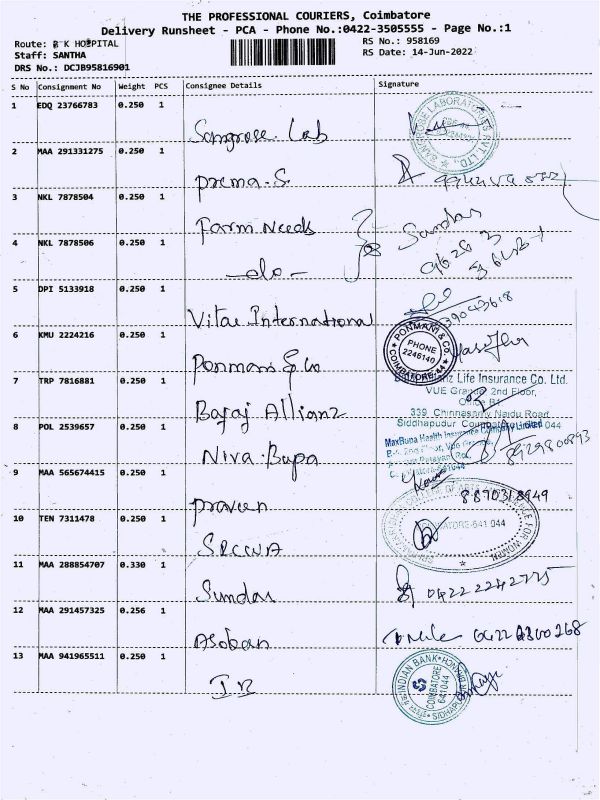 THE PROFESSIONAL COURIERS, Coimbatore
Delivery Runsheet - PCA - Phone No.:0422-3505555 - Page No.:1
Route: R K HOSPITAL
Staff: SANTHA
DRS No.: DCJB95816901
RS No.: 958169
RS Date: 14-Jun-2022
S No Consignment No Weight PCS Consignee Details Signature
1 EDQ 23766783 0.250 1
Sangrose Lab
2 MAA 291331275 0.250 1
prema.S.
3 NKL 7878504 0.250 1
Farm Needs
Sundar
4 NKL 7878506 0.250 1
-do-
5 DPI 5133918 0.250 1
Vital International
6 KMU 2224216 0.250 1
PONMANI & CO.
PHONE
2246140
COIMBATORE-44
Ponmani & Co
7 TRP 7816881 0.250 1
Life Insurance Co. Ltd.
VUE Grande, 2nd Floor,
339, Chinnasamy Naidu Road
Siddhapudur
044
Bajaj Allianz
8 POL 2539657 0.250 1
MaxBupa Health Insurance Company Limited
641044
8929800893
Niva.Bupa
9 MAA 565674415 0.250 1
8870318949
praveen
10 TEN 7311478 0.250 1
641 044
SRCWA
11 MAA 288854707 0.330 1
04222242775
Sundar
12 MAA 291457325 0.256 1
0422 2300268
Asoban
13 MAA 941965511 0.250 1
INDIAN BANK
COIMBATORE
641044
IB